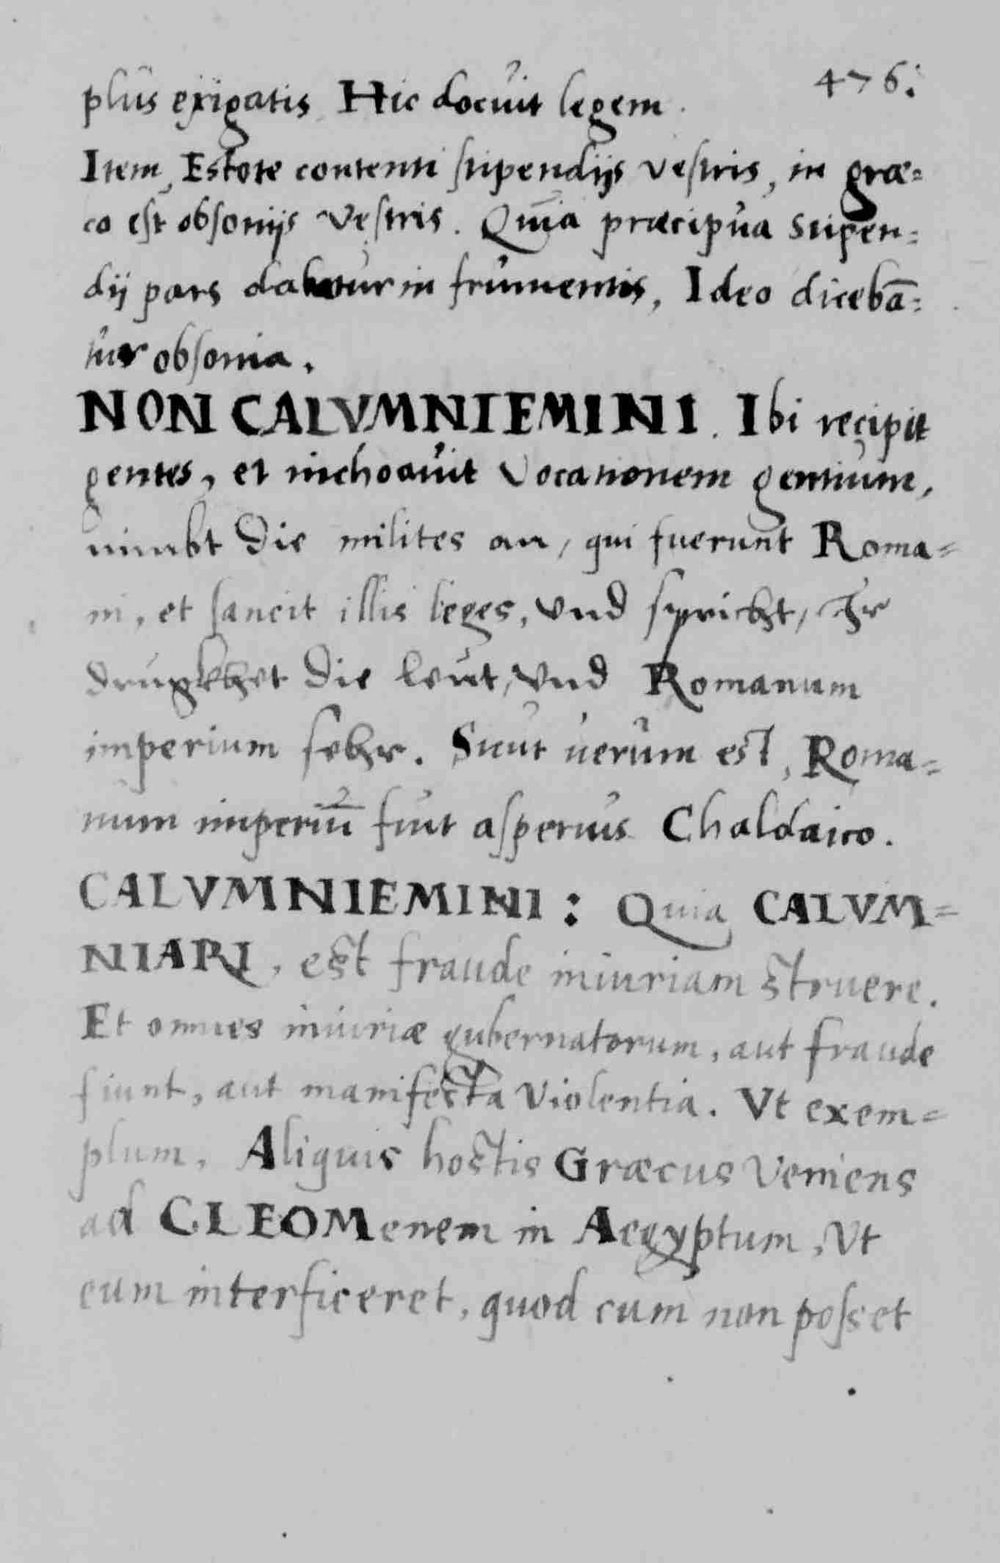 476.
plus exigatis. Hic docuit legem.
Item, Estote contenti stipendijs vestris, in græ=
co est obsonijs vestris. Quia præcipua stipen=
dij pars dabatur in frumentis, Ideo dicebā=
tur obsonia.
NON CALVMNIEMINI. Ibi recipit
gentes, et inchoauit Vocationem gentium,
nimbt die milites an, qui fuerunt Roma=
ni, et sancit illis leges, vnd spricht, ihr
drugkhet die leut, vnd Romanum
imperium sehr. Sicut uerum est, Roma=
num imperiū fuit asperius Chaldaico.
CALVMNIEMINI: Quia CALVM=
NIARI, est fraude iniuriam struere.
Et omnes iniuriæ gubernatorum, aut fraude
fiunt, aut manifesta violentia. Vt exem=
plum, Aliquis hostis Græcus veniens
ad CLEOMenem in Aegyptum, Vt
eum interficeret, quod cum non posset